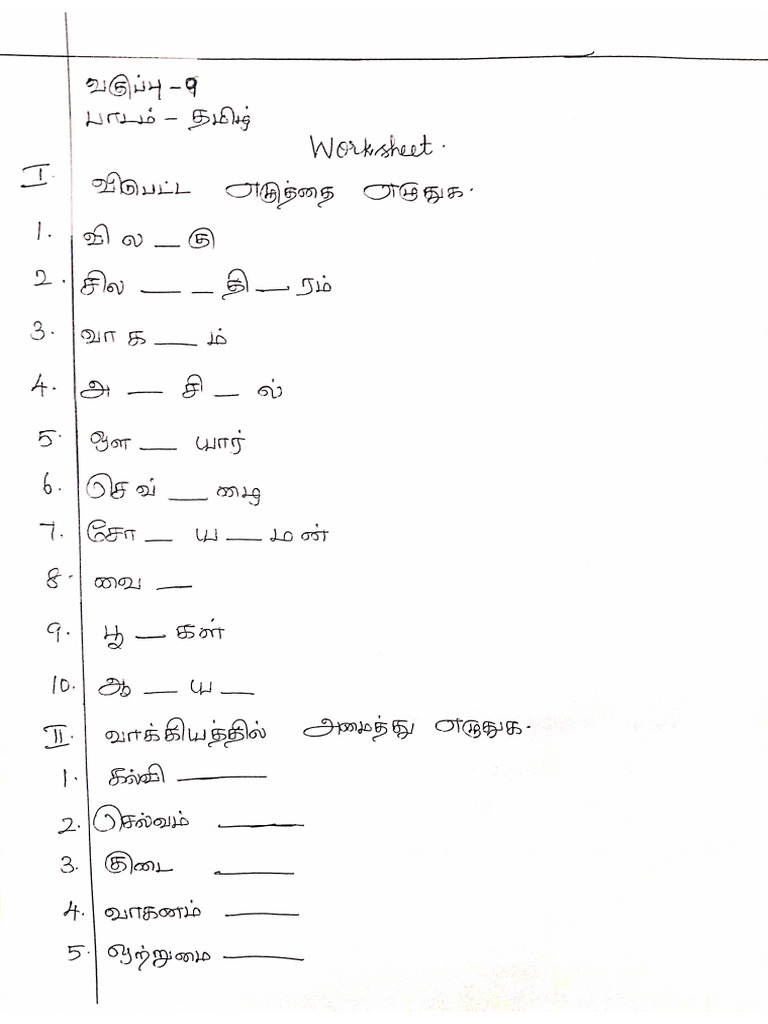 வகுப்பு - 9
பாடம் - தமிழ்
Worksheet.
I. விடுபட்ட எழுத்தை எழுதுக.
1. வி ல _ கு
2. சில _ _ தி _ ரம்
3. வா க _ ம்
4. அ _ சி _ ல்
5. ஔ _ யார்
6. செவ் _ ழை
7. சோ _ ய _ மன்
8. வை _
9. பூ _ கள்
10. ஆ _ ய _
II. வாக்கியத்தில் அமைத்து எழுதுக.
1. கல்வி _
2. செல்வம் _
3. குடை _
4. வாகனம் _
5. ஒற்றுமை _